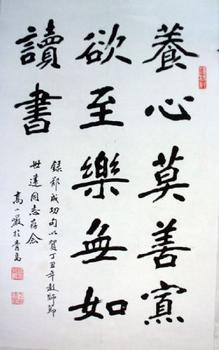 養心莫善寡
欲至樂無如
讀書
錄鄭成功句以賀丁丑年教師節
世同志存念
高小巖於青島